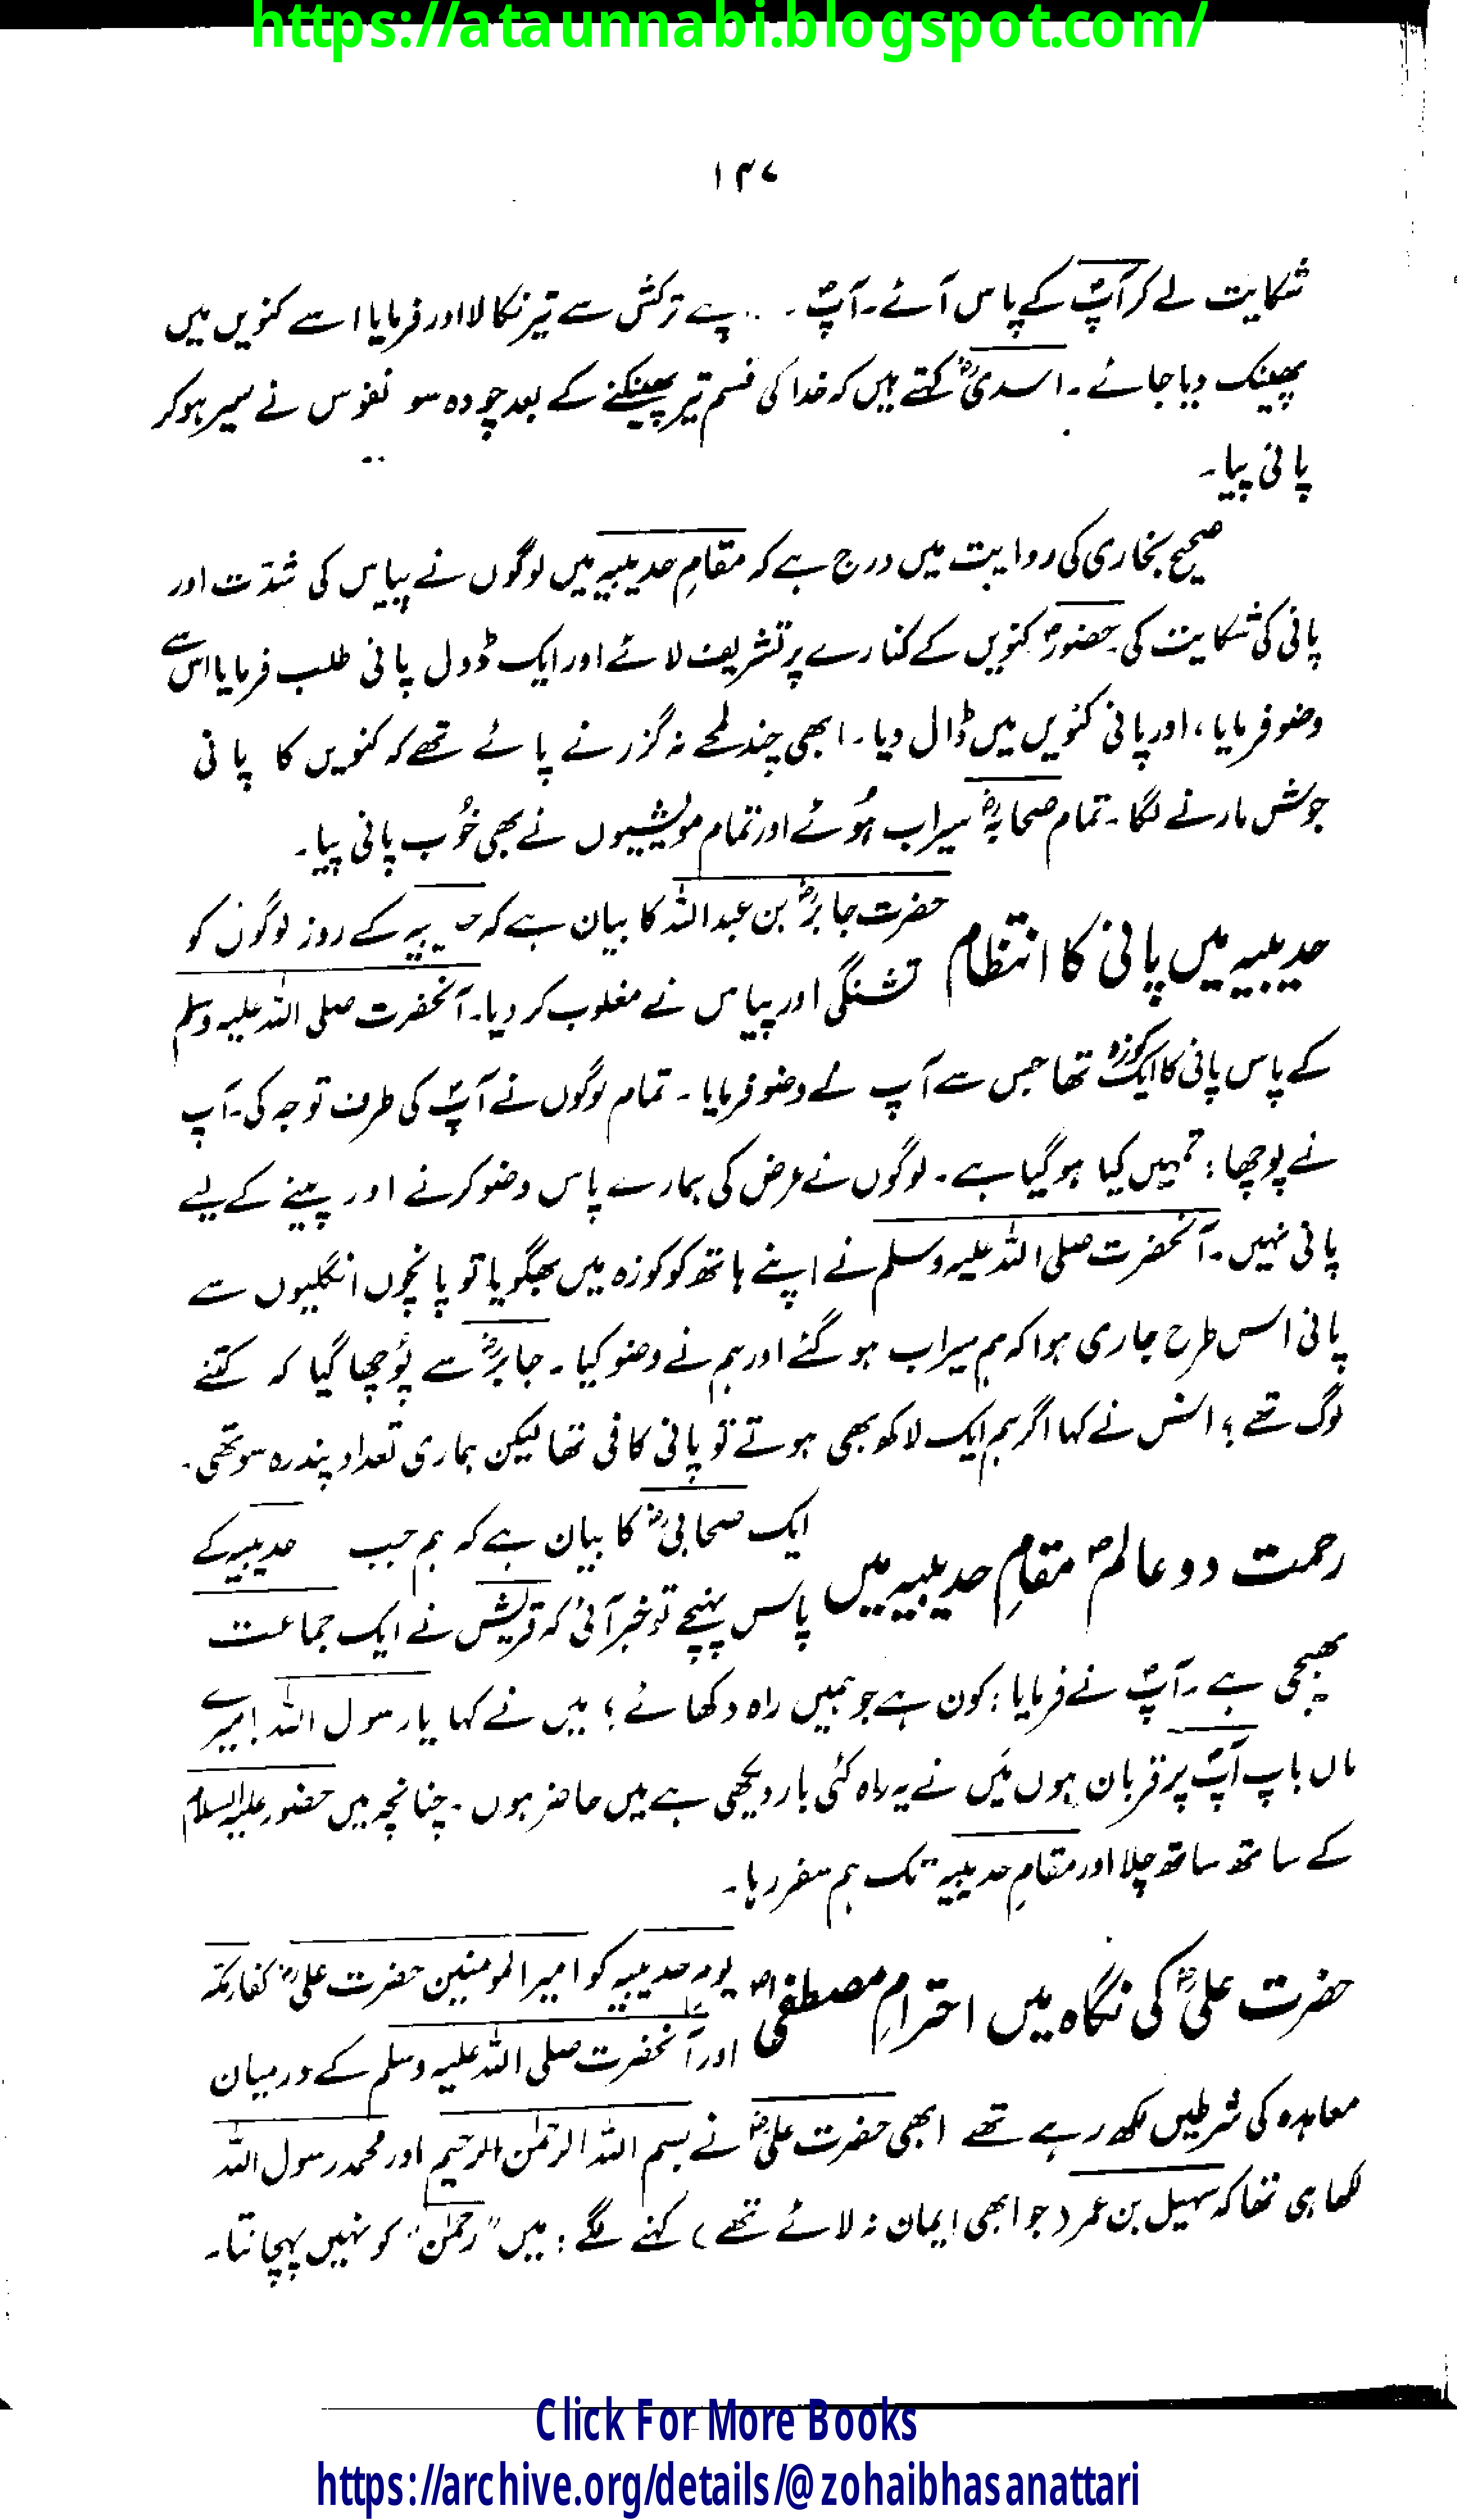 https://ataunnabi.blogspot.com/
۱۳۷
شکایت لے کر آپؐ کے پاس آئے۔ آپؐ ترکش سے تیر نکالا اور فرمایا اسے کنویں میں
پھینک دیا جائے۔ اسدیؓ کہتے ہیں کہ خدا کی قسم تیر پھینکنے کے بعد چودہ سو نفوس نے سیر ہو کر
پانی پیا۔
صحیح بخاری کی روایت میں درج ہے کہ مقامِ حدیبیہ میں لوگوں نے پیاس کی شدّت اور
پانی کی شکایت کی۔ حضورؐ کنویں کے کنارے پر تشریف لائے اور ایک ڈول پانی طلب فرمایا اس سے
وضو فرمایا، اور پانی کنویں میں ڈال دیا۔ ابھی چند لمحے نہ گزرنے پائے تھے کہ کنویں کا پانی
جوش مارنے لگا۔ تمام صحابہؓ سیراب ہُوئے اور تمام مویشیوں نے بھی خُوب پانی پیا۔
حدیبیہ میں پانی کا انتظام
حضرت جابرؓ بن عبداللہ کا بیان ہے کہ کے روز لوگوں کو
تشنگی اور پیاس نے مغلوب کر دیا۔ آنحضرت صلی اللہ علیہ وسلم
کے پاس پانی کا ایک کوزہ تھا جس سے آپ نے وضو فرمایا۔ تمام لوگوں نے آپؐ کی طرف توجہ کی۔ آپ
نے پوچھا: تمہیں کیا ہو گیا ہے۔ لوگوں نے عرض کی ہمارے پاس وضو کرنے اور پینے کے لیے
پانی نہیں۔ آنحضرت صلی اللہ علیہ وسلم نے اپنے ہاتھ کو کوزہ میں بھگویا تو پانچوں انگلیوں سے
پانی اس طرح جاری ہوا کہ ہم سیراب ہو گئے اور ہم نے وضو کیا۔ جابرؓ سے پُوچھا گیا کہ کتنے
لوگ تھے؟ انس نے کہا اگر ہم ایک لاکھ بھی ہوتے تو پانی کافی تھا لیکن ہماری تعداد پندرہ سو تھی۔
رحمت دو عالمؐ مقامِ حدیبیہ میں
ایک صحابیؓ کا بیان ہے کہ ہم جب حدیبیہ کے
پاس پہنچے تو خبر آئی کہ قریش نے ایک جماعت
بھیجی ہے۔ آپؐ نے فرمایا: کون ہے جو ہمیں راہ دکھائے؟ میں نے کہا یا رسول اللہ! میرے
ماں باپ آپؐ پر قربان ہوں میَں نے یہ راہ کئی بار دیکھی ہے میں حاضر ہوں۔ چنانچہ میں حضور علیہ السلام
کے ساتھ ساتھ چلا اور مقامِ حدیبیہ تک ہم سفر رہا۔
حضرت علیؓ کی نگاہ میں احترامِ مصطفیٰؐ
یومِ حدیبیہ کو امیر المومنین حضرت علیؓ کفارِ مکّہ
اور آنحضرت صلی اللہ علیہ وسلم کے درمیان
معاہدہ کی شرطیں لکھ رہے تھے ابھی حضرت علیؓ نے بسم اللہ الرحمٰن الرحیم اور محمد رسول اللہ
لکھا ہی تھا کہ سہیل بن عمر (جو ابھی ایمان نہ لائے تھے) کہنے لگے: میں "رحمٰن" کو نہیں پہچانتا۔
Click For More Books
https://archive.org/details/@zohaibhasanattari